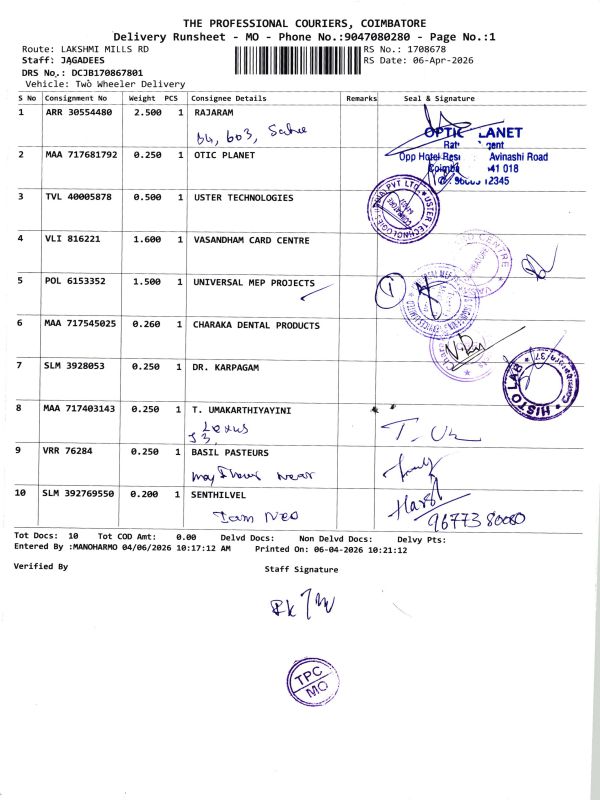 THE PROFESSIONAL COURIERS, COIMBATORE
Delivery Runsheet - MO - Phone No.:9047080280 - Page No.:1
Route: LAKSHMI MILLS RD
RS No.: 1708678
Staff: JAGADEES
RS Date: 06-Apr-2026
DRS No.: DCJB170867801
Vehicle: Two Wheeler Delivery
S No Consignment No Weight PCS Consignee Details Remarks Seal & Signature
1 ARR 30554480 2.500 1 RAJARAM
64, 603,
OPTIC PLANET
2 MAA 717681792 0.250 1 OTIC PLANET
Opp Hotel Avinashi Road
41 018
12345
3 TVL 40005878 0.500 1 USTER TECHNOLOGIES
USTER TECHNOLOGIES PVT LTD.
4 VLI 816221 1.600 1 VASANDHAM CARD CENTRE
CENTRE
5 POL 6153352 1.500 1 UNIVERSAL MEP PROJECTS
1
6 MAA 717545025 0.260 1 CHARAKA DENTAL PRODUCTS
7 SLM 3928053 0.250 1 DR. KARPAGAM
HISTO LAB
Coimbatore-37
8 MAA 717403143 0.250 1 T. UMAKARTHIYAYINI
Lexus
53
9 VRR 76284 0.250 1 BASIL PASTEURS
near
10 SLM 392769550 0.200 1 SENTHILVEL
96773 80080
Tot Docs: 10 Tot COD Amt: 0.00 Delvd Docs: Non Delvd Docs: Delvy Pts:
Entered By :MANOHARMO 04/06/2026 10:17:12 AM Printed On: 06-04-2026 10:21:12
Verified By
Staff Signature
TPC
MO